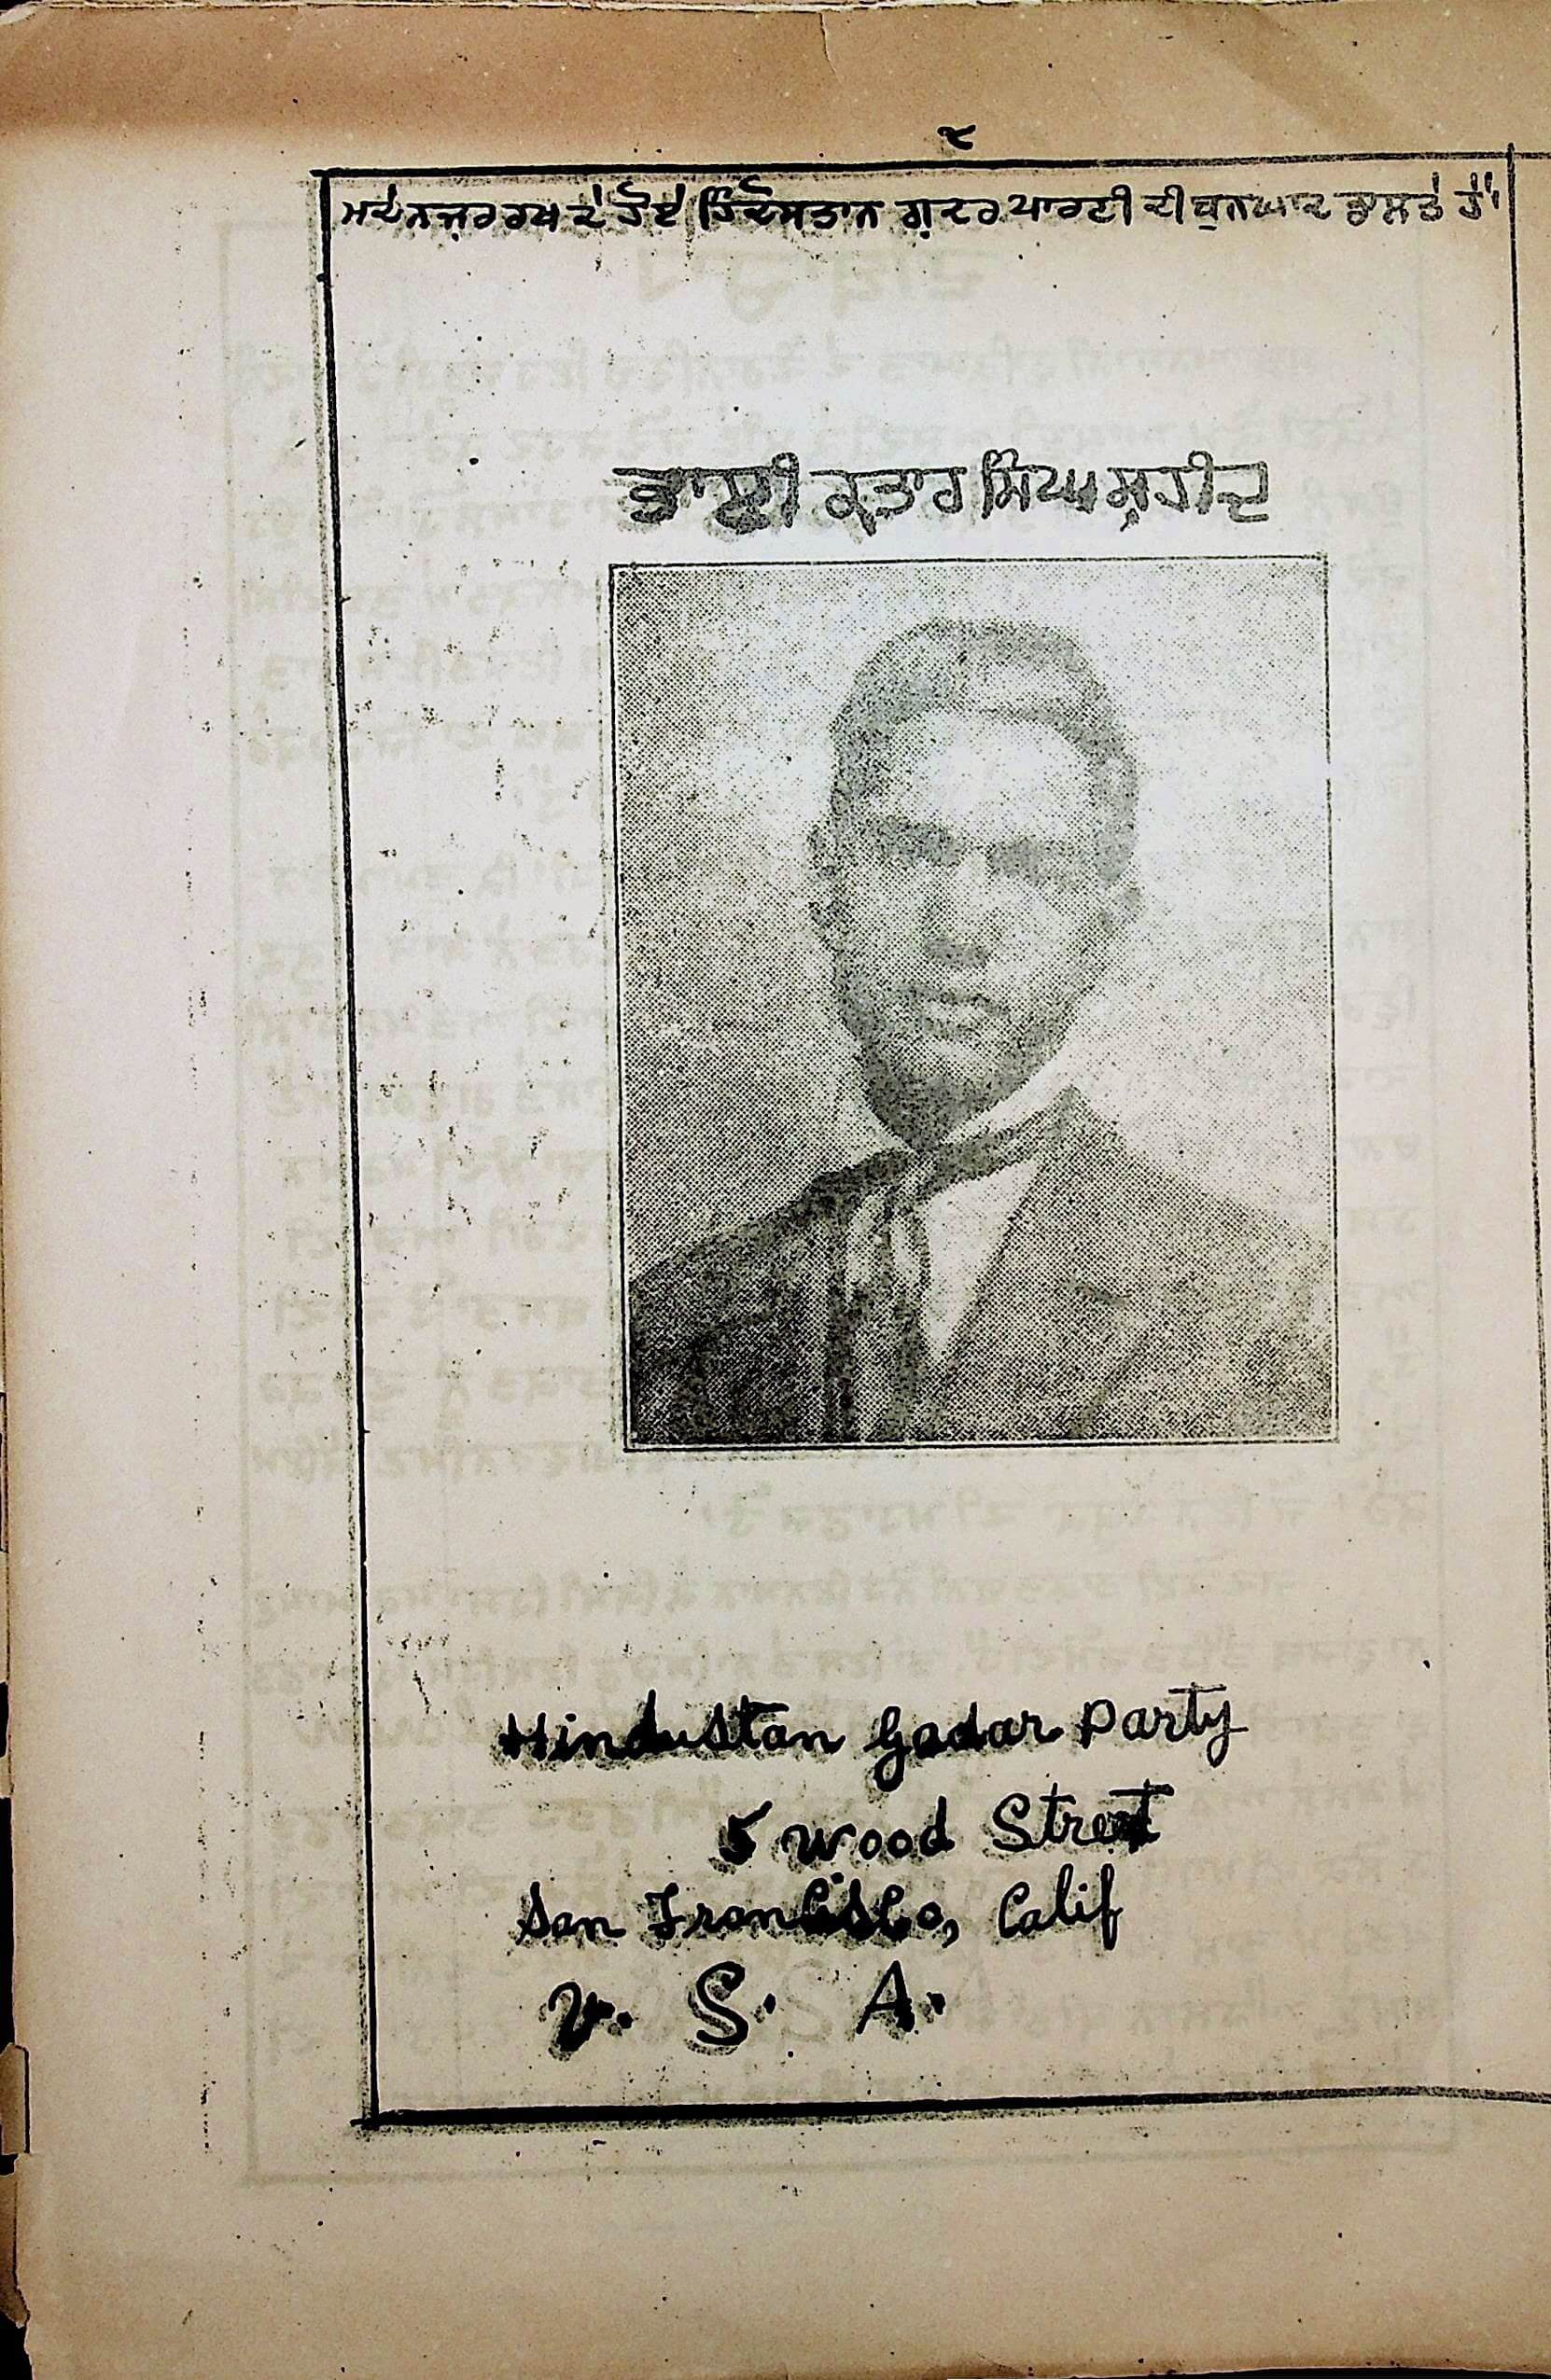 ੨
ਮਦੇ ਨਜ਼ਰ ਰਖ ਦੇ ਹੋਏ ਹਿੰਦੋਸਤਾਨ ਗ਼ਦਰ ਪਾਰਟੀ ਦੀ ਬੁਨਯਾਦ ਡਾਲਤੇ ਹੈਂ।
ਭਾਈ ਕ੍ਰਤਾਰ ਸਿੰਘ ਸ਼ਹੀਦ
Hindustan Gadar Party
5 Wood Street
San Francisco, Calif
U. S. A.